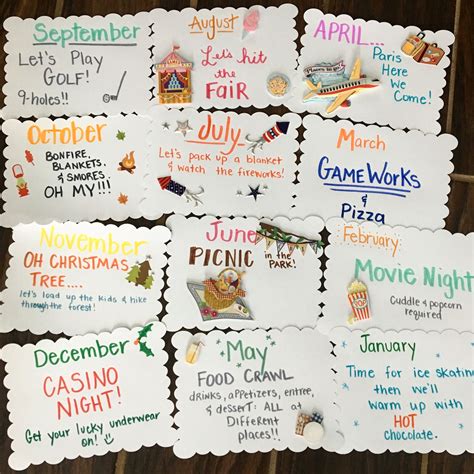 September
Let's Play
GOLF!
9-holes!!
August
Let's hit
the
FaiR
APRIL...
Paris
Here
We
Come!
October
BONFIRE,
BLANKETS,
& SMORES,
OH MY!!!
July
Let's pack up a blanket
& watch the fireworks!
March
GAMEWORKS
&
Pizza
November
OH CHRISTMAS
TREE....
let's load up the kids & hike
through the forest!
June
PICNIC
in the
PARK!
February:
Movie Night
Cuddle & popcorn
required
December
CASINO
NIGHT!
Get your lucky underwear
on!
May
FOOD CRAWL
drinks, appetizers, entree,
& dessert: ALL at
Different
places!!
January
Time for ice skating
then we'll
warm up with
HOT
chocolate!